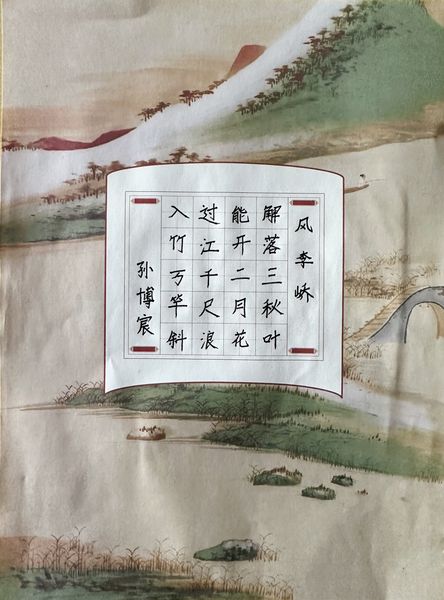 风 李峤
解落三秋叶
能开二月花
过江千尺浪
入竹万竿斜
孙博宸